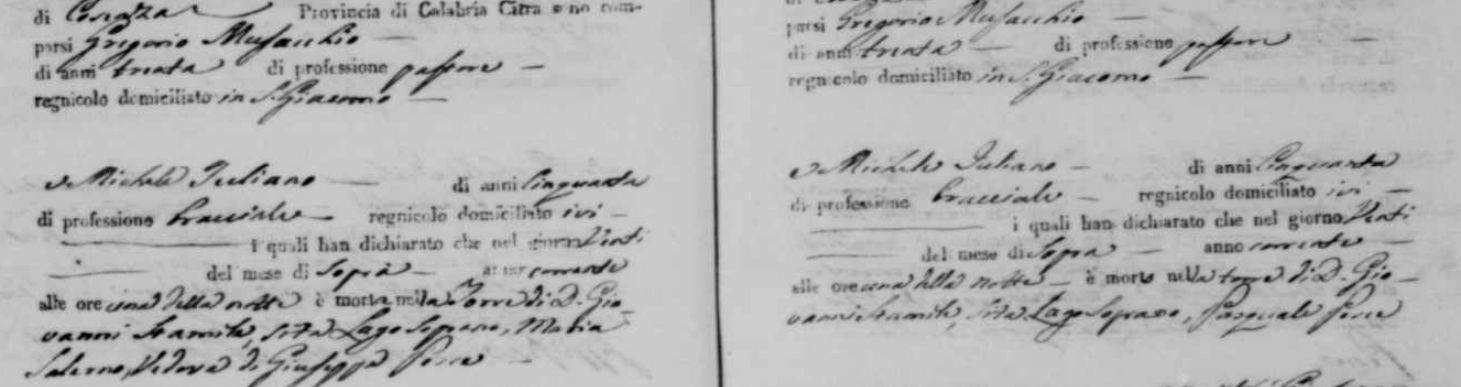 di Cosenza Provincia di Calabria Citra sono com-
parsi Gregorio Musacchio
di anni trenta di professione
regnicolo domiciliato in S. Giacomo
e Michele Iuliano di anni Cinquanta
di professione bracciale regnicolo domiciliato ivi
i quali han dichiarato che nel giorno Venti
del mese di Sopra anno corrente
alle ore una della notte è morta nella Torre di D. Gio
vanni Stamile, sita Lago Soprano, Maria
Salerno, Vedova di Giuseppe Pesce
parsi Gregorio Musacchio
di anni trenta di professione
regnicolo domiciliato in S. Giacomo
e Michele Iuliano di anni Cinquanta
di professione bracciale regnicolo domiciliato ivi
i quali han dichiarato che nel giorno Venti
del mese di Sopra anno corrente
alle ore una della notte è morto nella torre di D. Gio
vanni Stamile, sita Lago Soprano, Pasquale Pesce